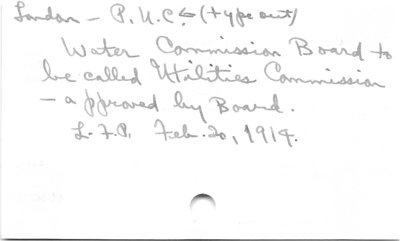 London - P.U.C. ← (type out)
Water Commission Board to
be called Utilities Commission
- approved by Board.
L.F.P. Feb. 20, 1914.